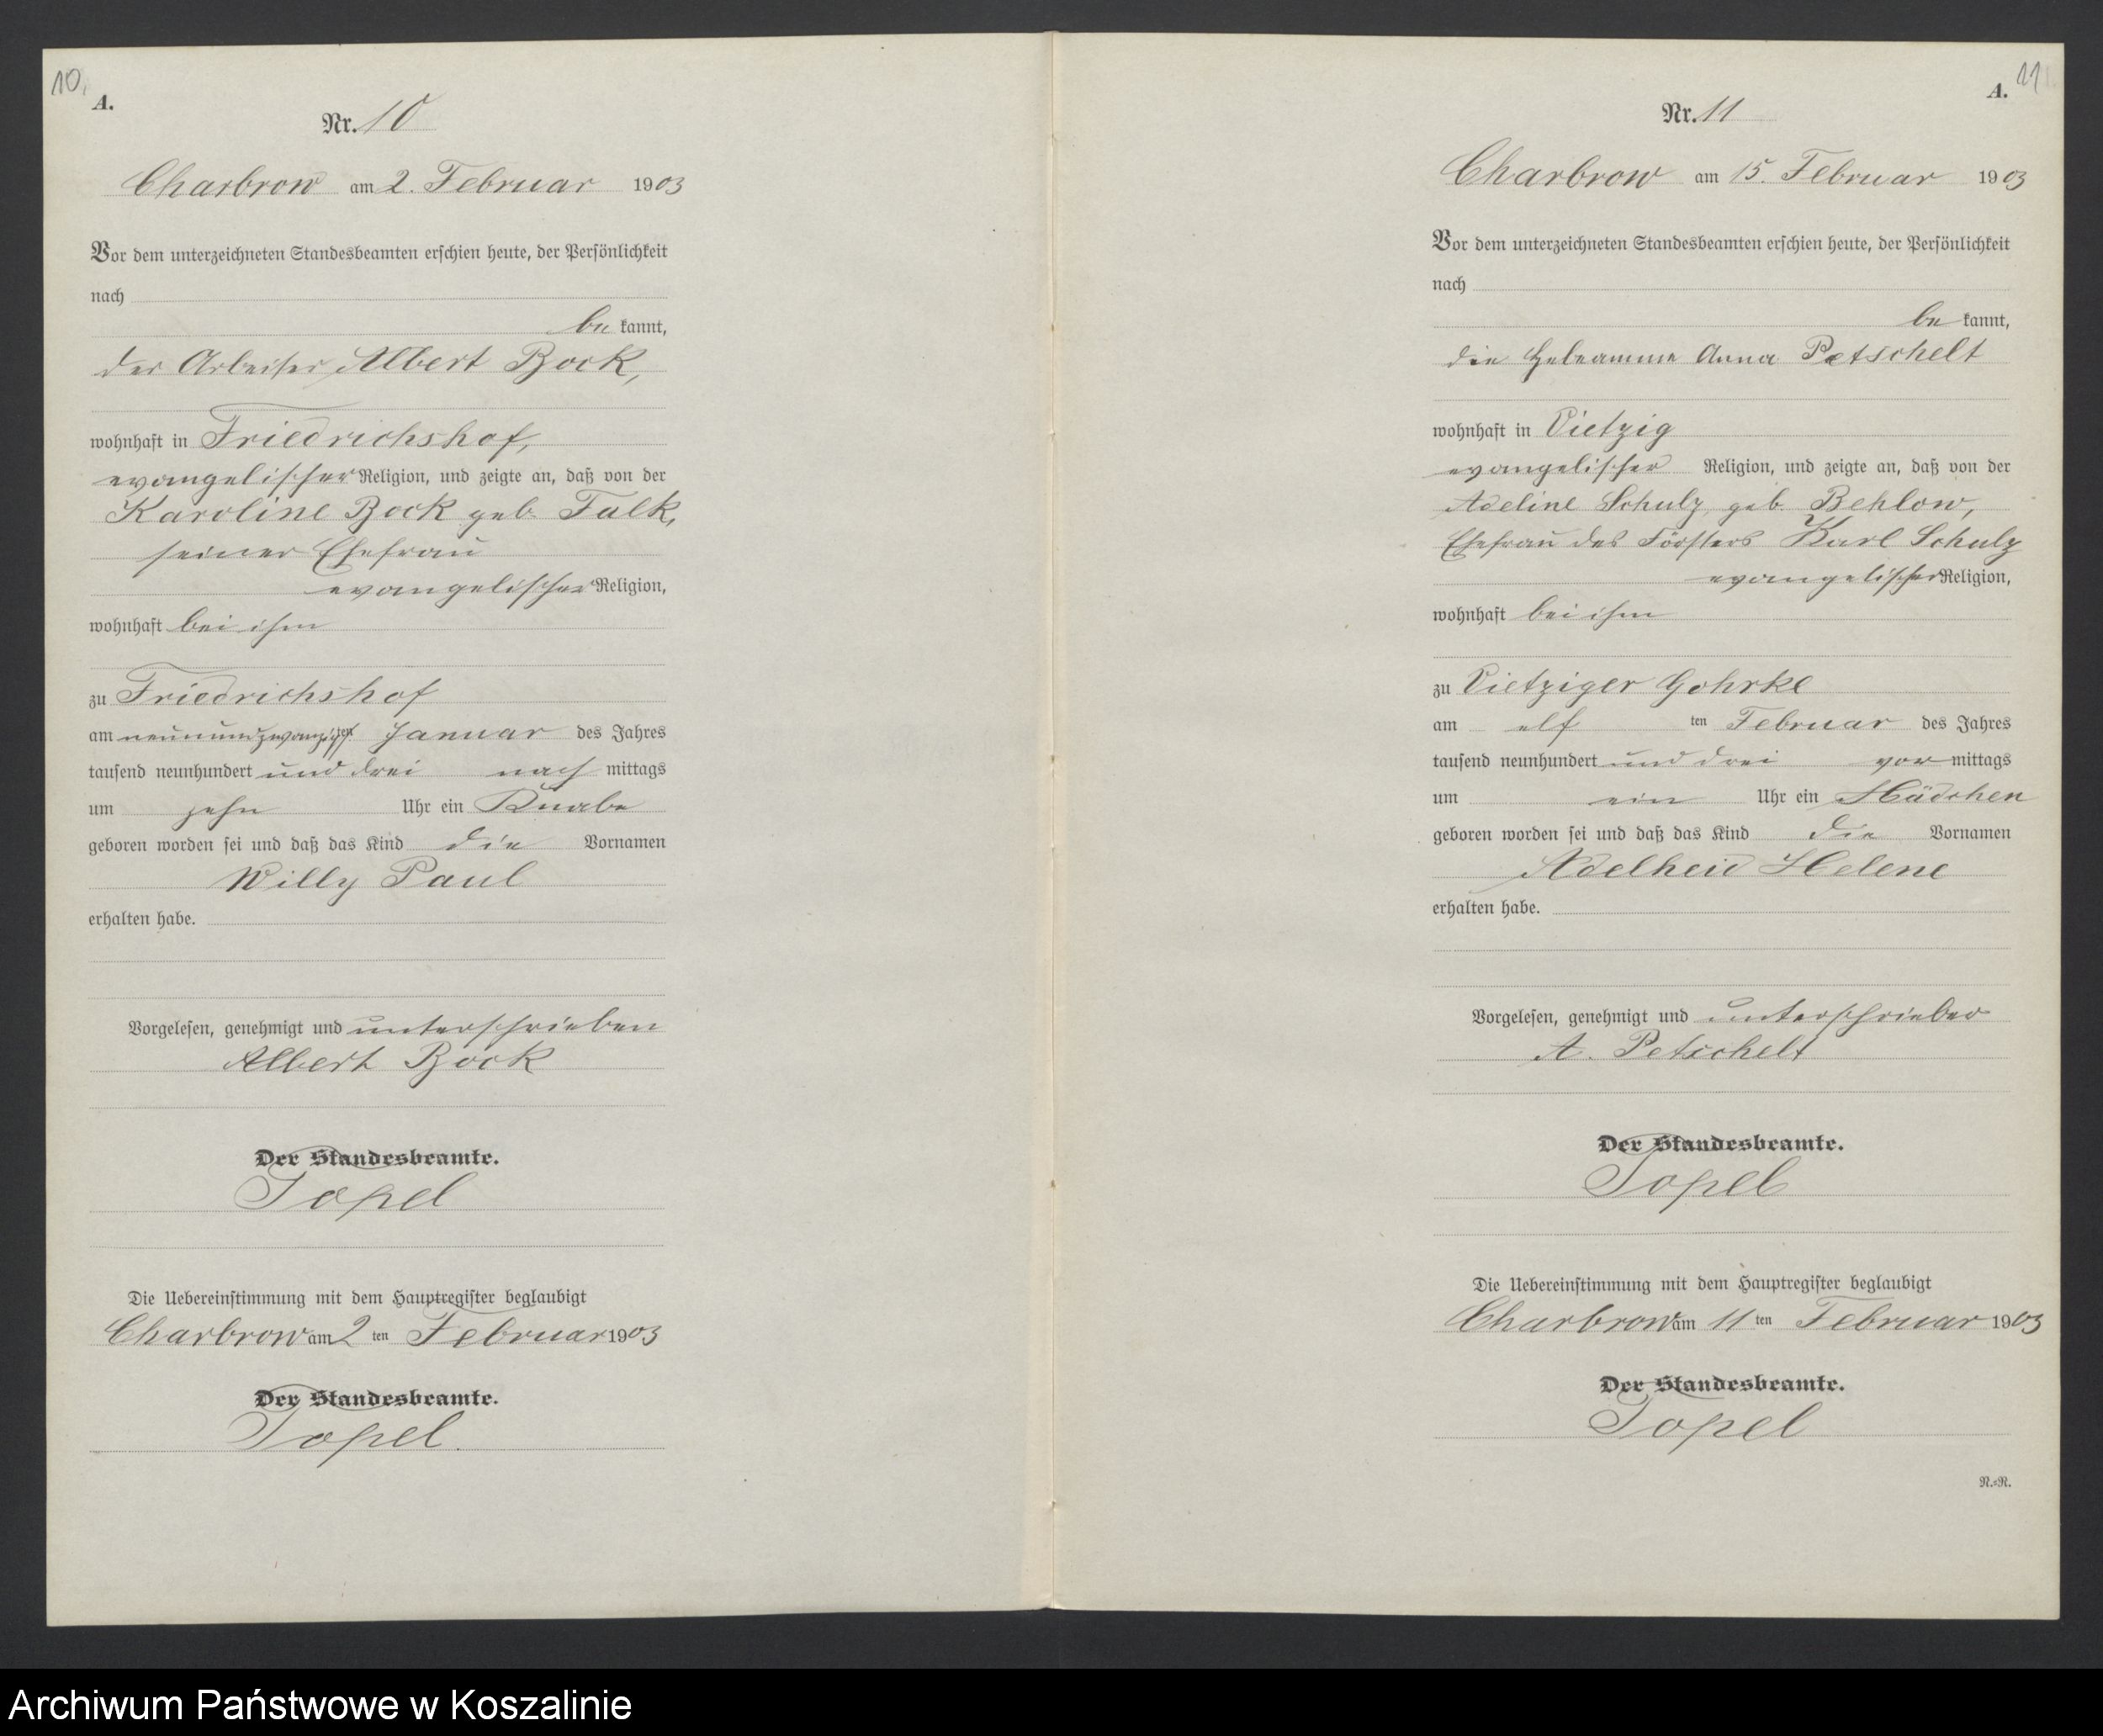 10.
A.
Nr. 10
Charbrow am 2. Februar 1903
Vor dem unterzeichneten Standesbeamten erschien heute, der Persönlichkeit
nach
be kannt,
der Arbeiter Albert Bock,
wohnhaft in Friedrichshof,
evangelischer Religion, und zeigte an, daß von der
Karoline Bock geb. Falk,
seiner Ehefrau
evangelischer Religion,
wohnhaft bei ihm
zu Friedrichshof
am neunundzwanzigsten Januar des Jahres
tausend neunhundert und drei nach mittags
um zehn Uhr ein Knabe
geboren worden sei und daß das Kind die Vornamen
Willy Paul
erhalten habe.
Vorgelesen, genehmigt und unterschrieben
Albert Bock
Der Standesbeamte.
Topel
Die Uebereinstimmung mit dem Hauptregister beglaubigt
Charbrow am 2 ten Februar 1903
Der Standesbeamte.
Topel.
11
A.
Nr. 11
Charbrow am 15. Februar 1903
Vor dem unterzeichneten Standesbeamten erschien heute, der Persönlichkeit
nach
be kannt,
die Hebeamme Anna Petschelt
wohnhaft in Vietzig
evangelischer Religion, und zeigte an, daß von der
Adeline Schulz, geb. Behlow,
Ehefrau des Försters Karl Schulz
evangelischer Religion,
wohnhaft bei ihm
zu Vietziger Gohrke
am elf ten Februar des Jahres
tausend neunhundert und drei vor mittags
um ein Uhr ein Mädchen
geboren worden sei und daß das Kind die Vornamen
Adelheid Helene
erhalten habe.
Vorgelesen, genehmigt und unterschrieben
A. Petschelt
Der Standesbeamte.
Topel
Die Uebereinstimmung mit dem Hauptregister beglaubigt
Charbrow am 11 ten Februar 1903
Der Standesbeamte.
Topel
N.=R.
Archiwum Państwowe w Koszalinie